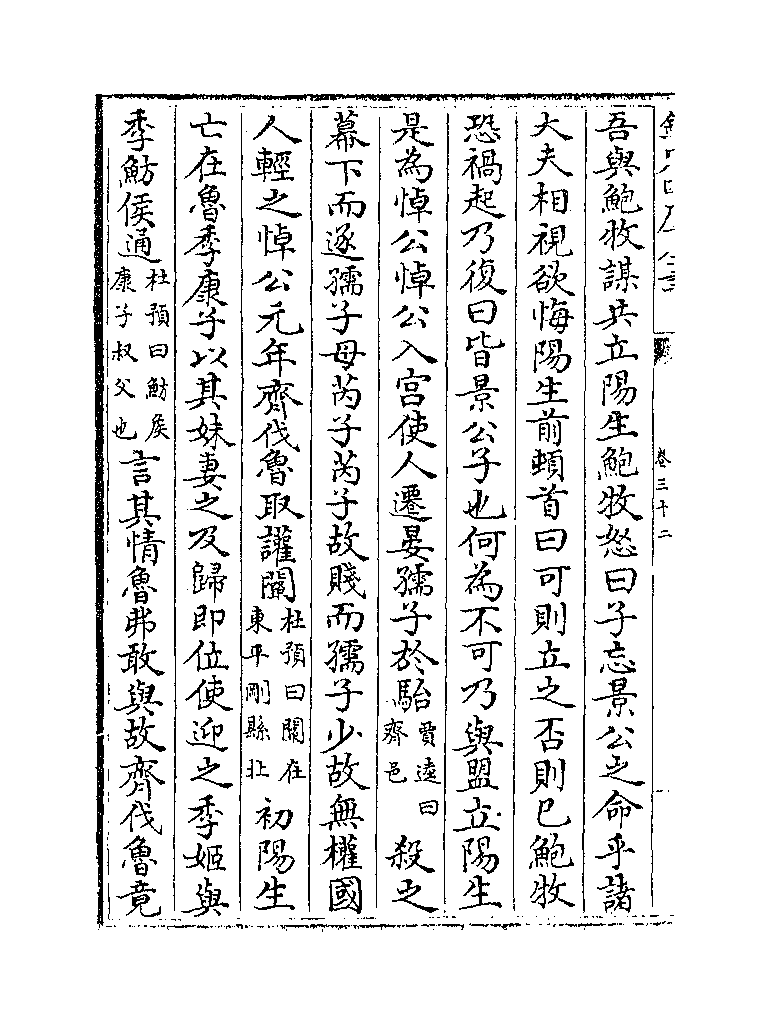 吾與鮑牧謀共立陽生鮑牧怒曰子忘景公之命乎諸
大夫相視欲悔陽生前頓首曰可則立之否則已鮑牧
恐禍起乃復曰皆景公子也何為不可乃與盟立陽生
是為悼公悼公入宮使人遷晏孺子於駘賈逵曰齊邑殺之
幕下而逐孺子母芮子芮子故賤而孺子少故無權國
人輕之悼公元年齊伐魯取讙闡杜預曰闡在東平剛縣北初陽生
亡在魯季康子以其妹妻之及歸即位使迎之季姬與
季魴侯通杜預曰魴侯康子叔父也言其情魯弗敢與故齊伐魯竟
卷三十二